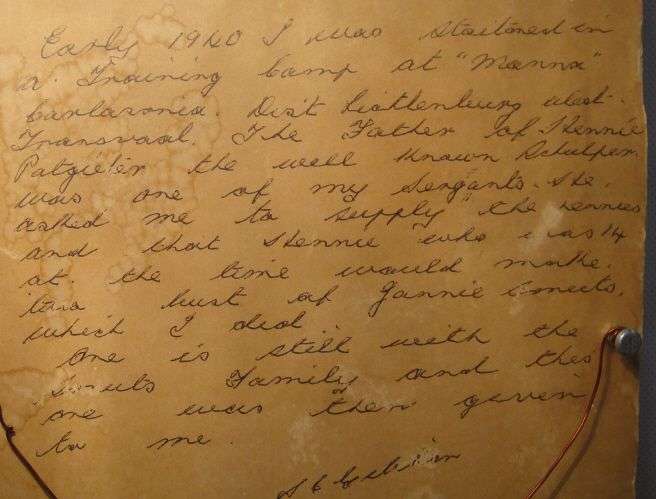 Early 1940 I was staitoned in
a Training Camp at "Manna"
Carlsonia. Dist Lichtenburg West.
Transvaal. The Father of Hennie
Potgieter the well known Schulper
was one of my Sergants. He.
asked me to supply the
and that Hennie who was 14
at the time would make.
two bust of Jannie Smuts.
which I did.
One is still with the
Smuts Family and this
one was then given
to me.